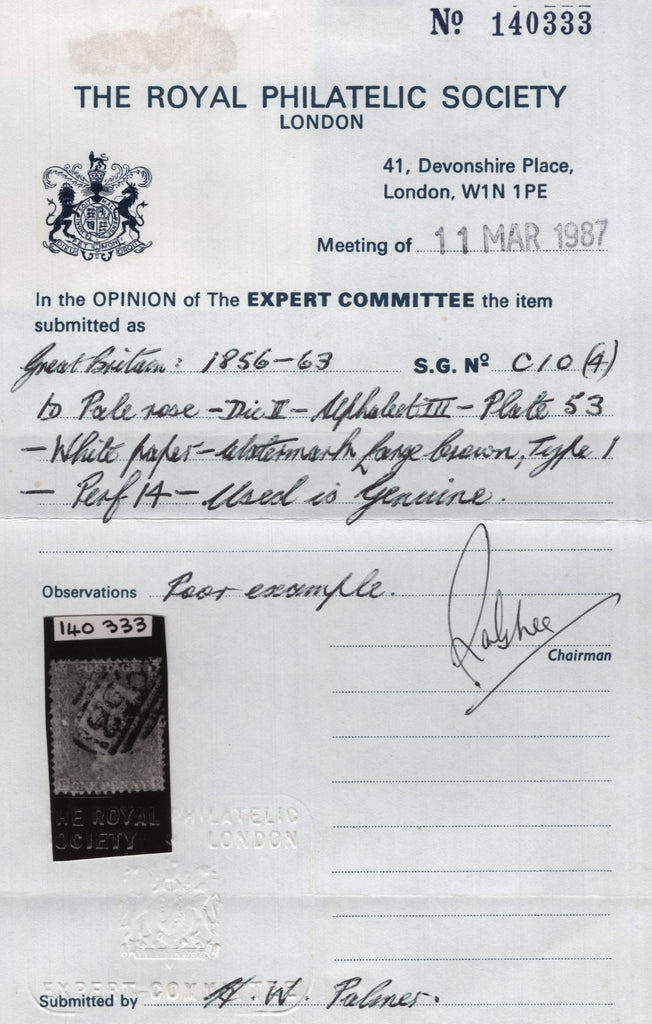 Nº 140333
THE ROYAL PHILATELIC SOCIETY
LONDON
41, Devonshire Place,
London, W1N 1PE
Meeting of 11 MAR 1987
In the OPINION of The EXPERT COMMITTEE the item
submitted as
Great Britain: 1856-63 S.G. Nº C10(4)
1D Pale rose - Die II - Alphabet III - Plate 53
- White paper - Watermark Large Crown, Type 1
- Perf 14 - Used is Genuine.
Observations Poor example.
Chairman
140 333
POSTAGE
HE ROYAL PHILATELIC
OCIETY LONDON
EXPERT-COMMITTEE
Submitted by H. W. Palmer.